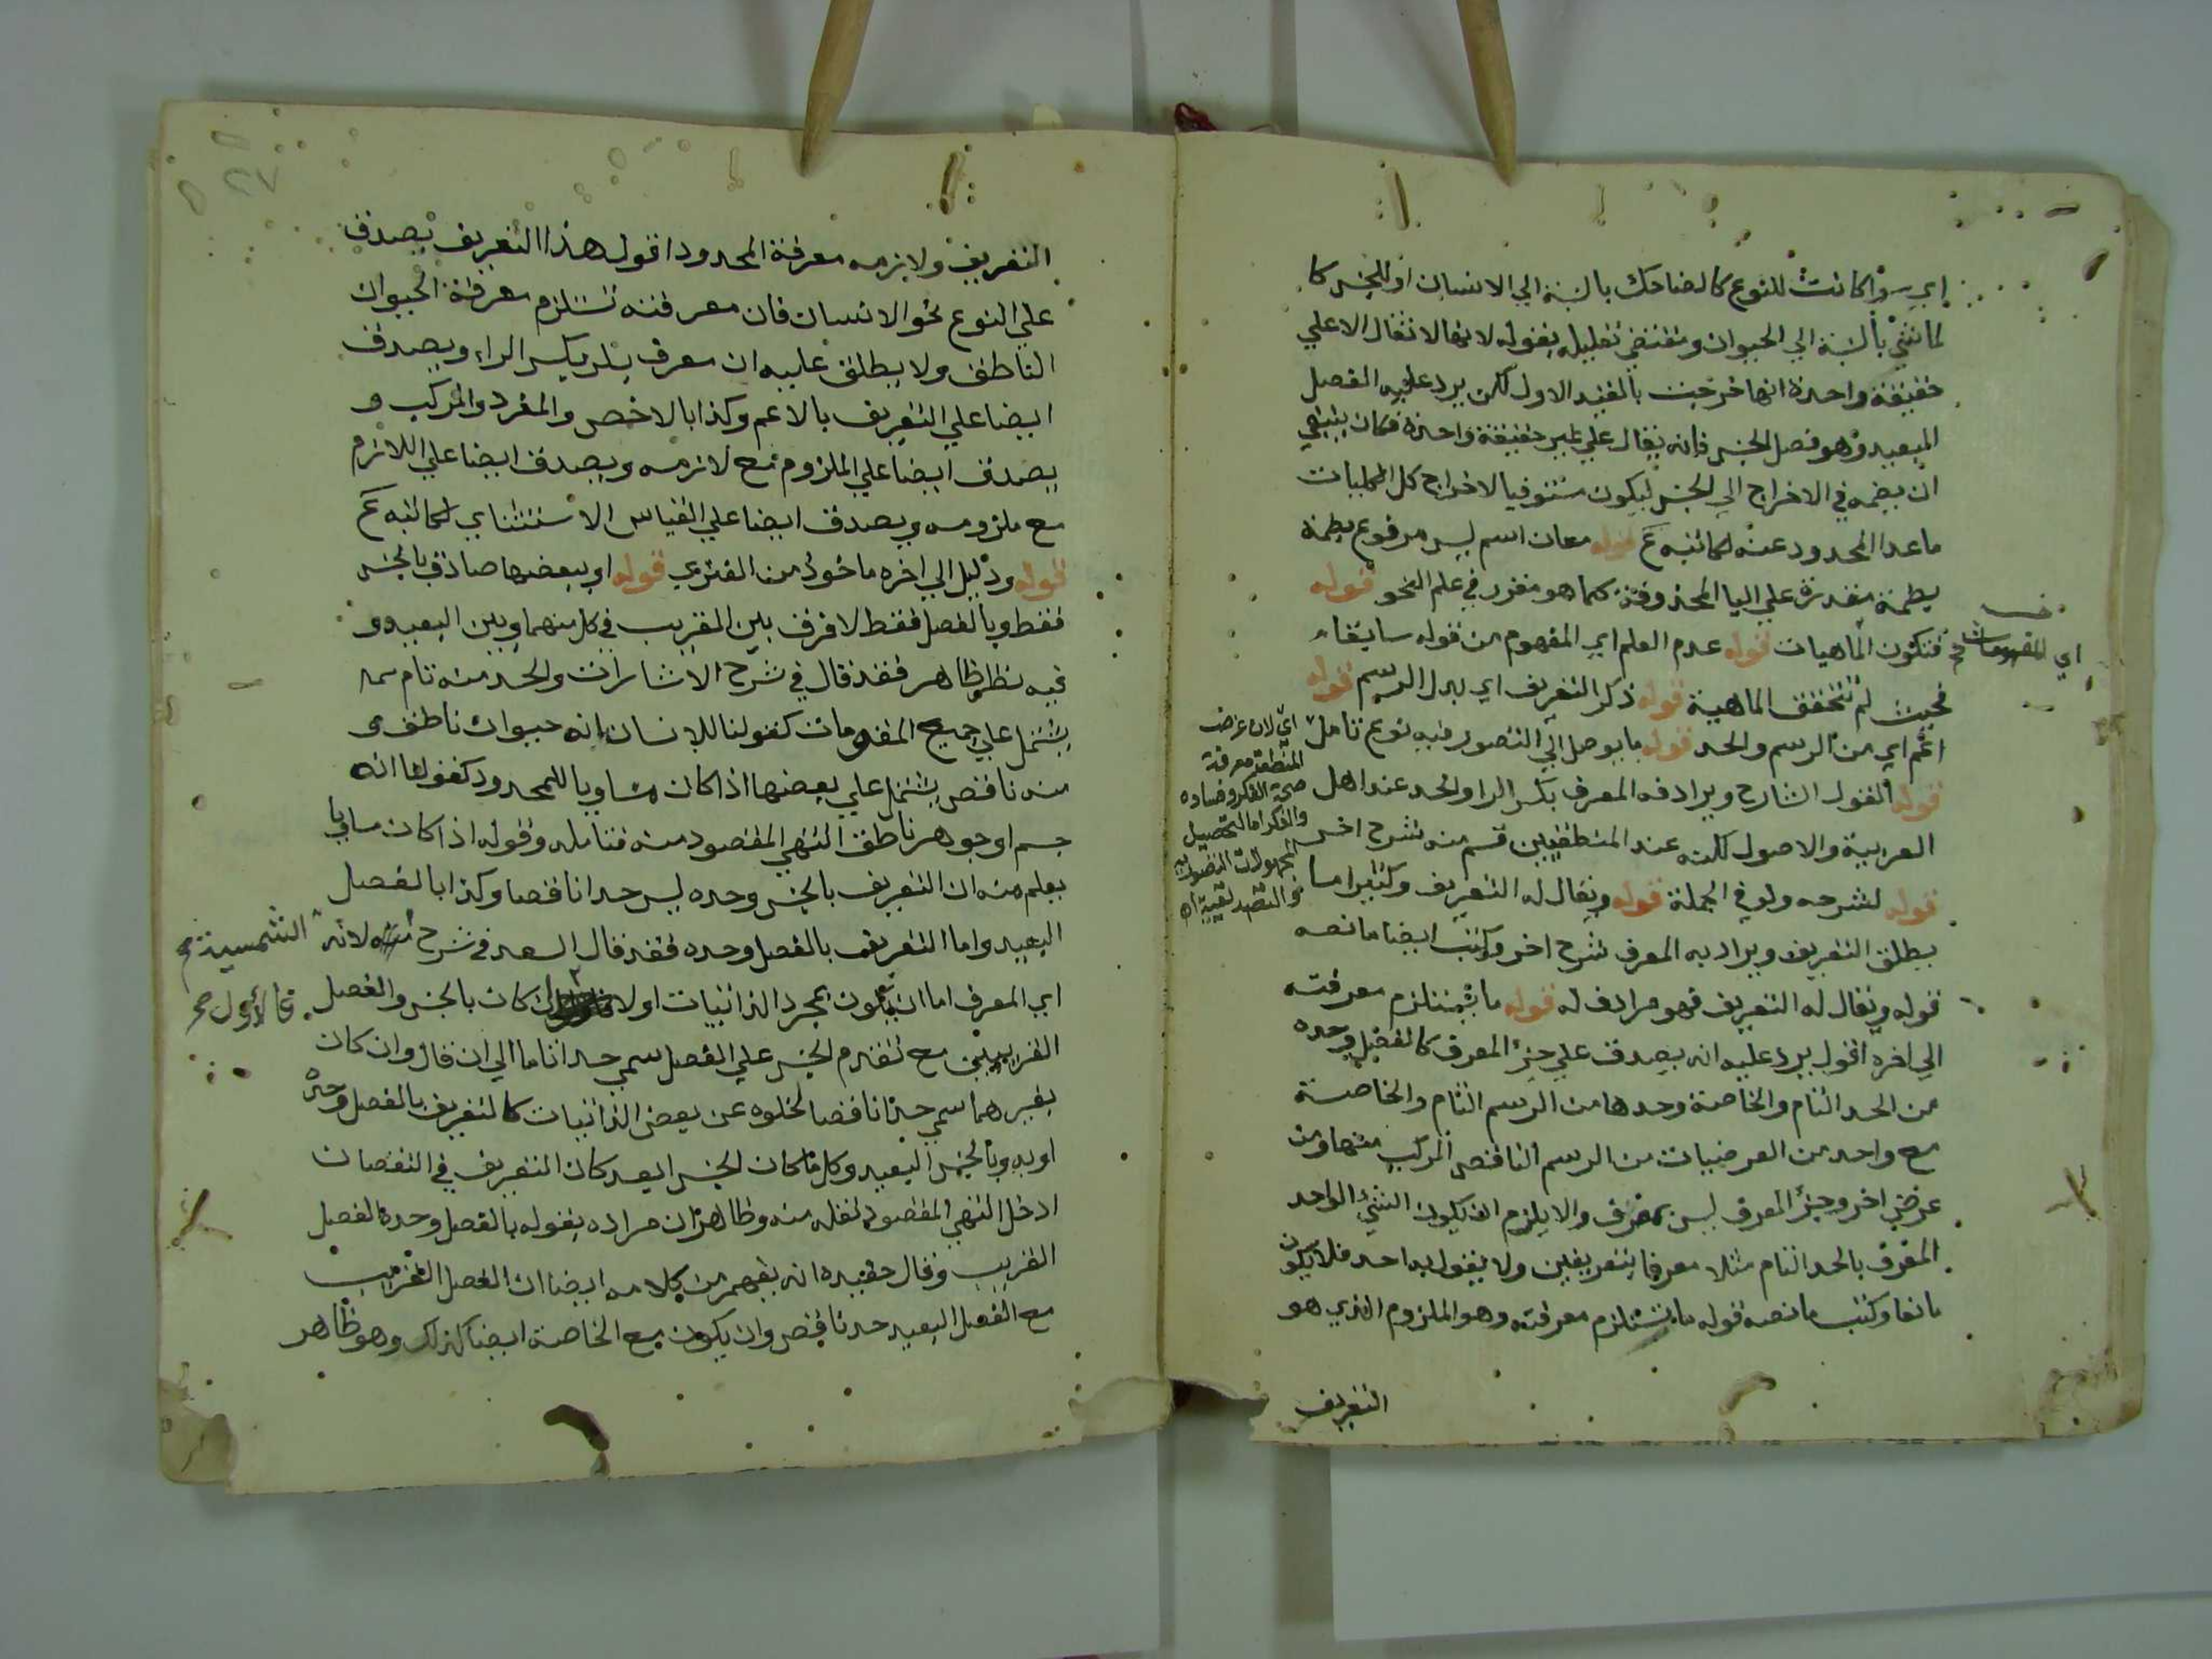 اي سواكانت للنوع كالضاحك بالنسبة الي الانسان او للجنس كا
لماشي بالنسبة الي الحيوان ومقتضي تعليله بقوله لانها لا تقال الا علي
حقيقة واحدة انها خرجت بالقيد الاول لكن يرد عليه الفصل
البعيد وهو فصل الجنس فانه يقال علي غير حقيقة واحدة فكان ينبغي
ان يضمه في الاخراج الي الجنس ليكون مستوفيا لاخراج كل الكليات
ماعدا المحدود عنه كما نبه ع قوله معان اسم ليس مرفوع بضمة
بضمة مقدرة علي اليا المحذوفة كما هو مقرر في علم النحو قوله
فتكون الماهيات قوله عدم العلم اي المفهوم من قوله سابقا
فحيث لم تتحقق الماهية قوله ذكر التعريف اي بدل الرسم قوله
اعم اي من الرسم والحد قوله ما يوصل الي التصور فيه نوع تامل
قوله القول الشارح ويرادفه المعرف بكسر الرا والحد عند اهل
العربية والاصول لكنه عند المنطقيين قسم منه شرح اخر
قوله لشرحه ولو في الجملة قوله ويقال له التعريف وكثيرا ما
يطلق التعريف ويراد به المعرف شرح اخر وكتب ايضا ما نصه
قوله ويقال له التعريف فهو مرادف له قوله ما يستلزم معرفته
الي اخره اقول يرد عليه انه يصدق علي جزء المعرف كالفصل وحده
من الحد التام والخاصة وحدها من الرسم التام والخاصة
مع واحد من العرضيات من الرسم الناقص المركب منها ومن
عرضي اخر وجزء المعرف ليس بمعرف والا يلزم ان يكون الشيء الواحد
المعرف بالحد التام مثلا معرفا بتعريفين ولا يقول به احد فلا يكون
مانعا وكتب ما نصه قوله ما يستلزم معرفته وهو الملزوم الذي هو
التعريف
اي المفهومات
اي لان غرض
المنطقي معرفة
صحة الفكر وفساده
والفكر اما لتحصيل
المجهولات التصورية
او التصديقية اه
التعريف ولازمه معرفة المحدود اقول هذا التعريف يصدق
علي النوع نحو الانسان فان معرفته تستلزم معرفة الحيوان
الناطق ولا يطلق عليه ان معرف بكسر الراء ويصدق
ايضا علي التعريف بالاعم وكذا بالاخص والمفرد والمركب و
يصدق ايضا علي الملزوم مع لازمه ويصدق ايضا علي اللازم
مع ملزومه ويصدق ايضا علي القياس الاستثناي كما نبه ع
قوله ودليل الي اخره ماخوذ من الفنري قوله او ببعضها صادق بالجنس
فقط وبالفصل فقط لا فرق بين القريب في كل منهما وبين البعيد و
فيه نظر ظاهر فقد قال في شرح الاشارات والحد منه تام
يشتمل علي جميع المقومات كقولنا للانسان انه حيوان ناطق و
منه ناقص يشتمل علي بعضها اذا كان مساويا للمحدود كقولنا انه
جسم او جوهر ناطق انتهي المقصود منه فتامله وقوله اذا كان مساويا
يعلم منه ان التعريف بالجنس وحده ليس حدا ناقصا وكذا بالفصل
البعيد واما التعريف بالفصل وحده فقد قال السعد في شرح الشمسية لانه
اي المعرف اما ان يكون بمجرد الذاتيات اولا فالاول ان كان بالجنس والفصل
القريبين مع تقدم الجنس علي الفصل سمي حدا تاما الي ان قال وان كان
بغيرهما سمي حدا ناقصا لخلوه عن بعض الذاتيات كالتعريف بالفصل وحده
او به وبالجنس البعيد وكل ما كان الجنس ابعد كان التعريف في النقصان
ادخل انتهي المقصود نقله منه وظاهر ان مراده بقوله بالفصل وحده الفصل
القريب وقال حفيده انه يفهم من كلامه ايضا ان الفصل القريب
مع الفصل البعيد حد ناقص وان يكون مع الخاصة ايضا كذلك وهو ظاهر